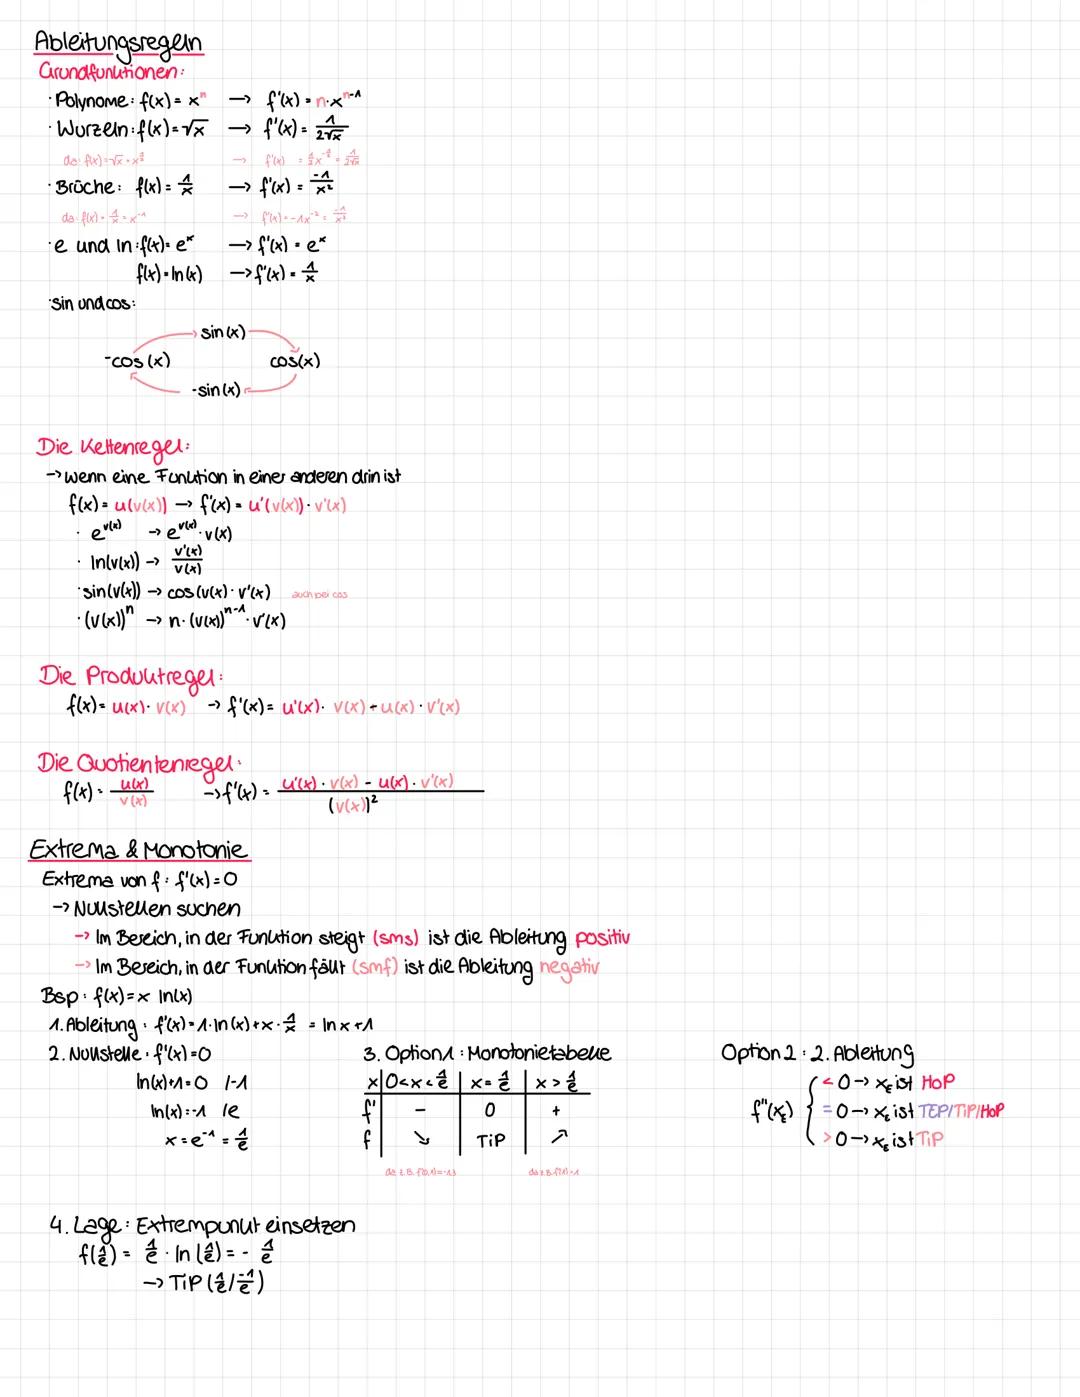 Ableitungsregeln
Grundfunktionen:
· Polynome: f(x) = xⁿ → f'(x) = n·xⁿ⁻¹
· Wurzeln: f(x) = √x → f'(x) = 1/(2√x)
da: f(x) = √x = x^(1/2) → f'(x) = 1/2 x^(-1/2) = 1/(2√x)
· Brüche: f(x) = 1/x → f'(x) = -1/x²
da: f(x) = 1/x = x⁻¹ → f'(x) = -1x⁻² = -1/x²
· e und ln: f(x) = eˣ → f'(x) = eˣ
f(x) = ln(x) → f'(x) = 1/x
· sin und cos:
sin(x)
-cos(x) cos(x)
-sin(x)
Die Kettenregel:
→ wenn eine Funktion in einer anderen drin ist
f(x) = u(v(x)) → f'(x) = u'(v(x)) · v'(x)
· e^(v(x)) → e^(v(x)) · v(x)
· ln(v(x)) → v'(x)/v(x)
· sin(v(x)) → cos(v(x) · v'(x) auch bei cos
· (v(x))ⁿ → n · (v(x))ⁿ⁻¹ · v'(x)
Die Produktregel:
f(x) = u(x) · v(x) → f'(x) = u'(x) · v(x) + u(x) · v'(x)
Die Quotientenregel:
f(x) = u(x)/v(x) → f'(x) = (u'(x) · v(x) - u(x) · v'(x))/(v(x))²
Extrema & Monotonie
Extrema von f: f'(x) = 0
→ Nullstellen suchen
→ Im Bereich, in der Funktion steigt (sms) ist die Ableitung positiv
→ Im Bereich, in der Funktion fällt (smf) ist die Ableitung negativ
Bsp: f(x) = x ln(x)
1. Ableitung: f'(x) = 1·ln(x) + x · 1/x = ln x + 1
2. Nullstelle: f'(x) = 0
ln(x)+1 = 0 /-1
ln(x) = -1 /e
x = e⁻¹ = 1/e
3. Option 1: Monotonietabelle
x | 0<x<1/e | x = 1/e | x > 1/e
f' | - | 0 | +
f | ↘ | TiP | ↗
da z.B. f'(0,1) = -1,3 da z.B. f'(1) = 1
Option 2: 2. Ableitung
< 0 → x_E ist HoP
f''(x_E) { = 0 → x_E ist TEP/TiP/HoP
> 0 → x_E ist TiP
4. Lage: Extrempunkt einsetzen
f(1/e) = 1/e · ln(1/e) = - 1/e
→ TiP (1/e / -1/e)